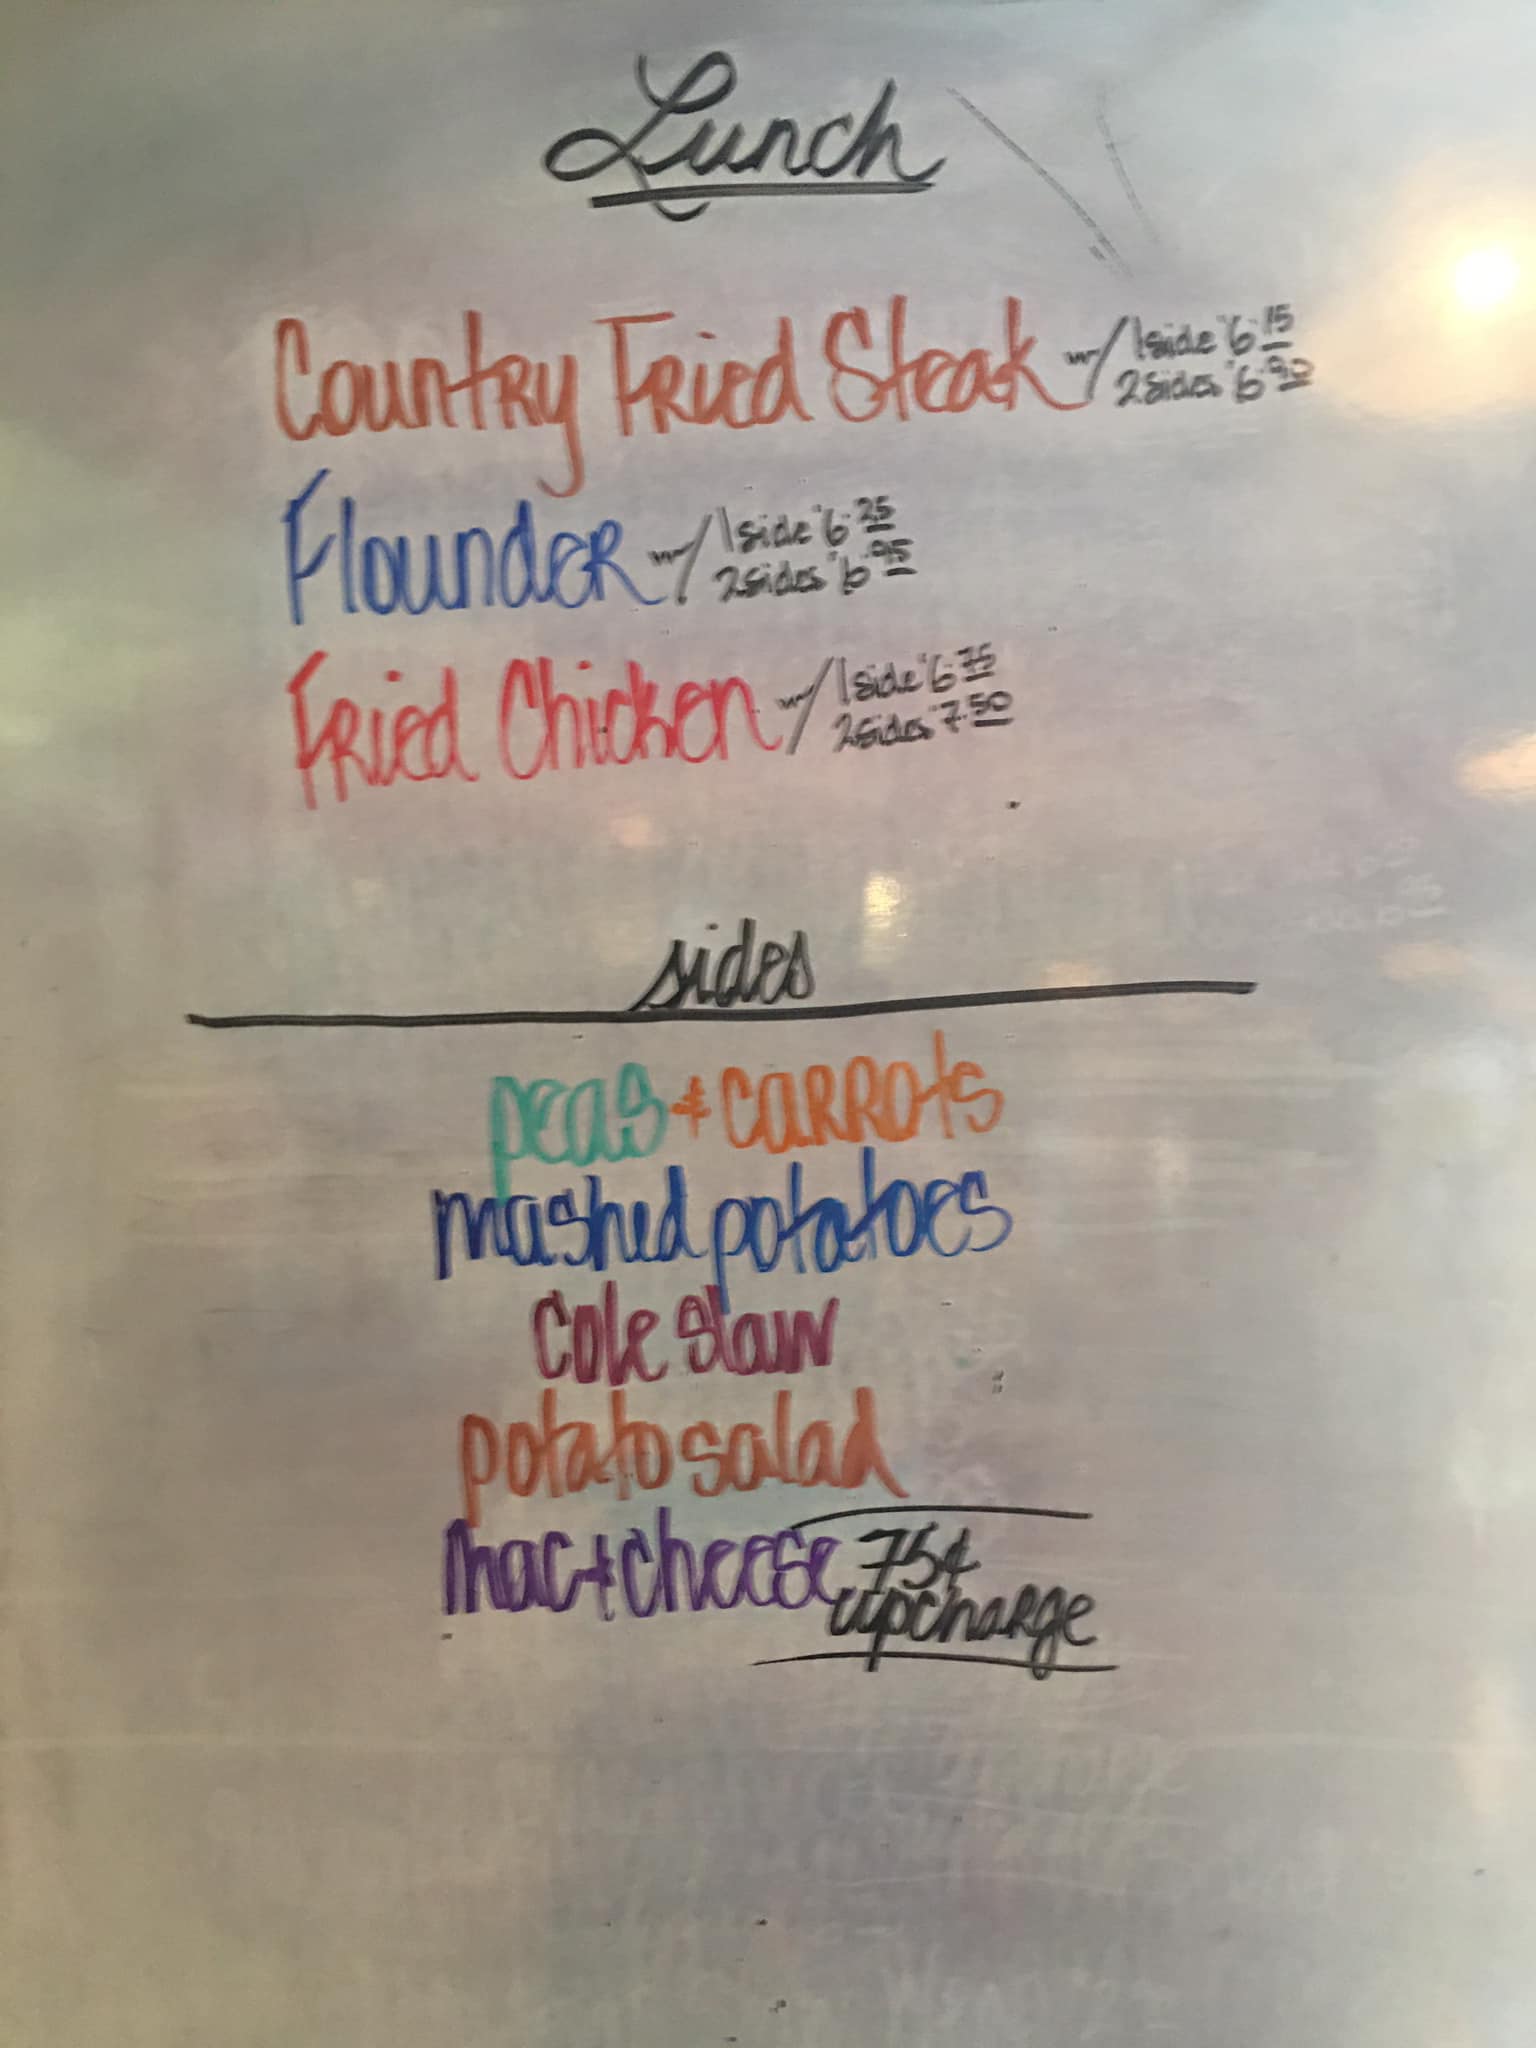 Lunch
Country Fried Steak w/ 1 side 6.15
2 sides 6.90
Flounder w/ 1 side 6.25
2 sides 6.95
Fried Chicken w/ 1 side 6.75
2 sides 7.50
sides
peas & carrots
mashed potatoes
Cole slaw
potato salad
mac & cheese 75¢
upcharge